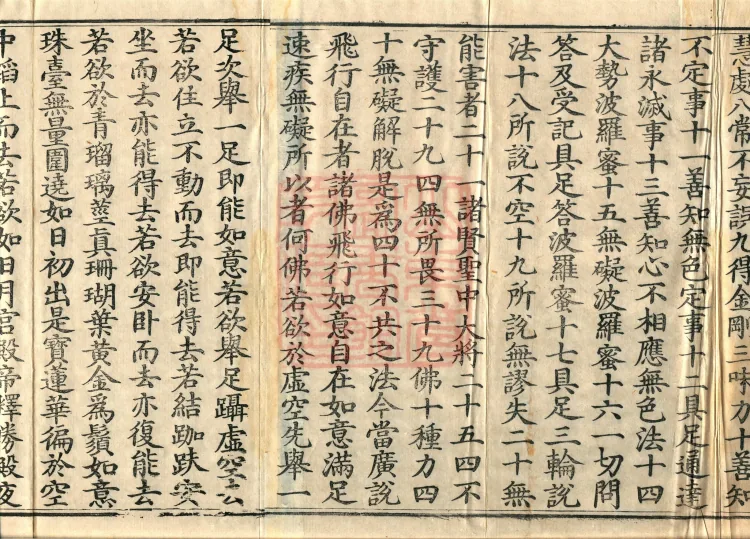 慧處八常不妄誤九得金剛三昧力十善知
不定事十一善知無色定事十二具足通達
諸永滅事十三善知心不相應無色法十四
大勢波羅蜜十五無礙波羅蜜十六一切問
答及受記具足答波羅蜜十七具足三輪說
法十八所說不空十九所說無謬失二十無
能害者二十一諸賢聖中大將二十五四不
守護二十九四無所畏三十九佛十種力四
十無礙解脫是爲四十不共之法今當廣說
飛行自在者諸佛飛行如意自在如意滿足
速疾無礙所以者何佛若欲於虛空先舉一
足次舉一足即能如意若欲舉足躡虛空去
若欲住立不動而去即能得去若結跏趺安
坐而去亦能得去若欲安卧而去亦復能去
若欲於青瑠璃莖真珊瑚葉黃金爲鬚如意
珠臺無量圍遶如日初出是寶蓮華徧於空
中蹈上而去若欲如日月宮殿帝釋勝殿夜